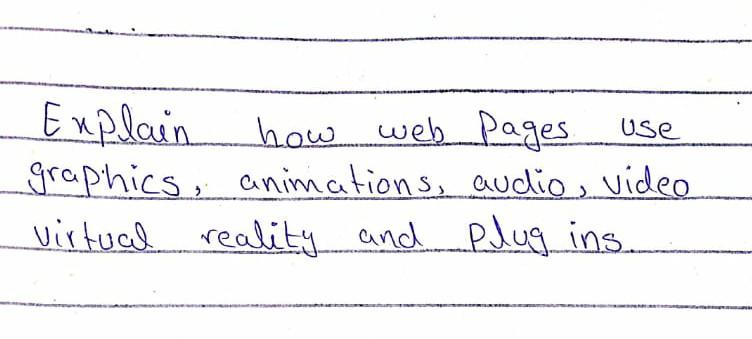 Explain how web Pages use
graphics, animations, audio, video
virtual reality and Plug ins.